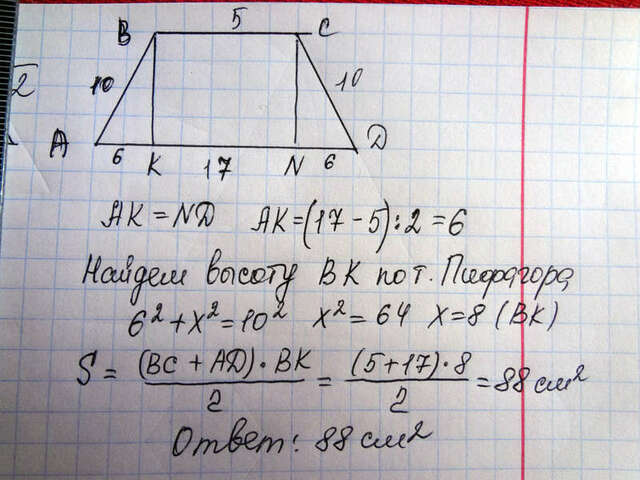 5
B C
2
10 10
A D
6 K 17 N 6
AK = ND AK=(17-5):2=6
Найдем высоту BK по т. Пифагора
6²+x²=10² x²=64 x=8 (BK)
S = (BC + AD)·BK / 2 = (5+17)·8 / 2 = 88 см²
Ответ: 88 см²